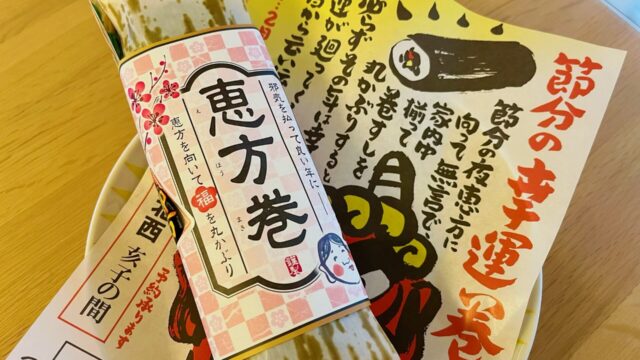 恵方巻
え
ほう
まき
邪気を払って良い年に
恵方を向いて福を丸かぶり
謹製
節分の幸運巻
節分の夜恵方に
向て無言で
家内中
揃って
巻ずしを
丸かぶりすると
必らずその年は幸
運が廻って
予約承ります
亥子の間